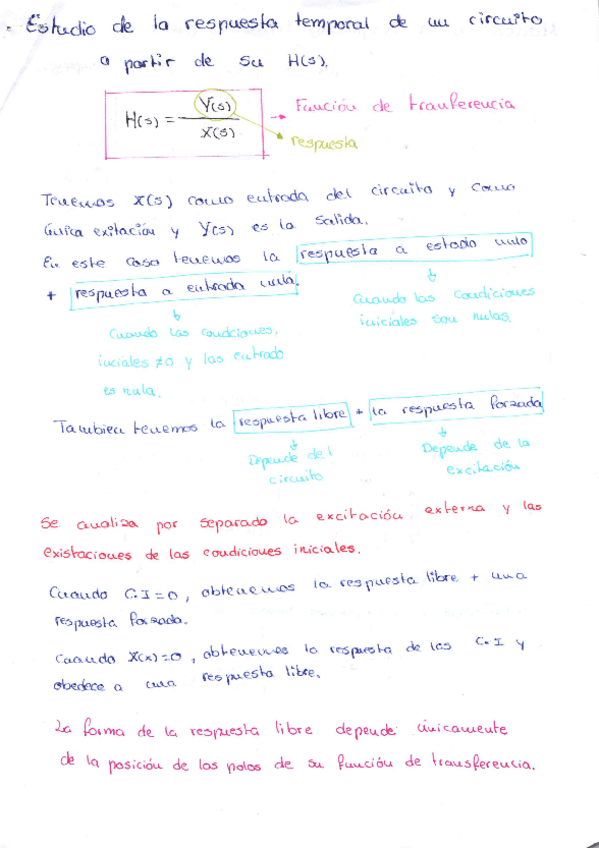 - Estudio de la respuesta temporal de un circuito
a partir de su H(s).
H(s) = Y(s) / X(s) → Función de tranferencia
respuesta
Tenemos X(s) como entrada del circuito y como
única exitación y Y(s) es la salida.
En este caso tenemos la respuesta a estado nulo
+ respuesta a entrada nula.
Cuando las condiciones
iniciales son nulas.
Cuando las condciones,
inciales ≠0 y las entrada
es nula.
Tambien tenemos la respuesta libre + la respuesta forzada
Depende del
circuito
Depende de la
excitación
Se analiza por separado la excitación externa y las
existaciones de las condiciones iniciales.
Cuando C.I=0, obtenemos la respuesta libre + una
respuesta forzada.
Cuando X(x)=0, obtenemos la respuesta de las C.I y
obedece a una respuesta libre.
La forma de la respuesta libre depende únicamente
de la posición de los polos de su función de transferencia.